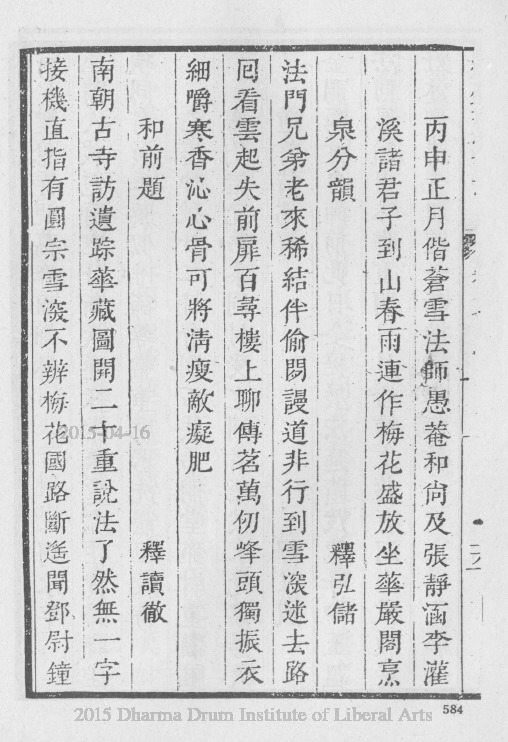 丙申正月偕蒼雪法師愚菴和尙及張靜涵李灌
溪諸君子到山春雨連作梅花盛放坐華嚴閣烹
泉分韻　釋弘儲
法門兄弟老來稀結伴偷閱謾道非行到雪深迷去路
囘看雲起失前扉百尋樓上聊傳茗萬仞峰頭獨振衣
細嚼寒香沁心骨可將淸瘦敵癡肥
和前題　釋讀徹
南朝古寺訪遺踪華藏圖開二十重說法了然無一字
接機直指有圓宗雪深不辨梅花國路斷遙聞鄧尉鐘
584
2015-04-16
2015 Dharma Drum Institute of Liberal Arts